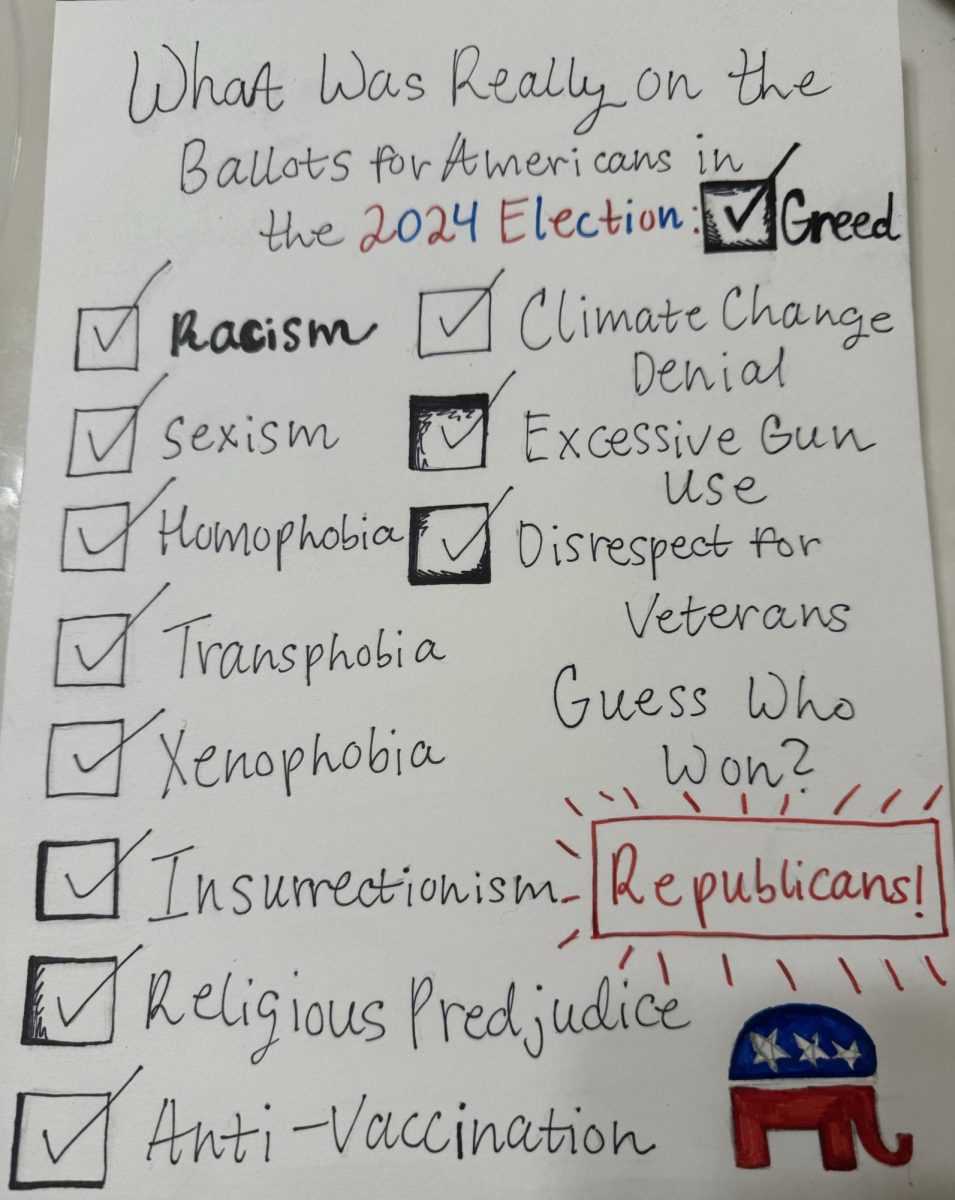 What Was Really on the
Ballots for Americans in
the 2024 Election:
Greed
Racism
Sexism
Homophobia
Transphobia
Xenophobia
Insurrectionism
Religious Predjudice
Anti-Vaccination
Climate Change
Denial
Excessive Gun
Use
Disrespect for
Veterans
Guess Who
Won?
Republicans!